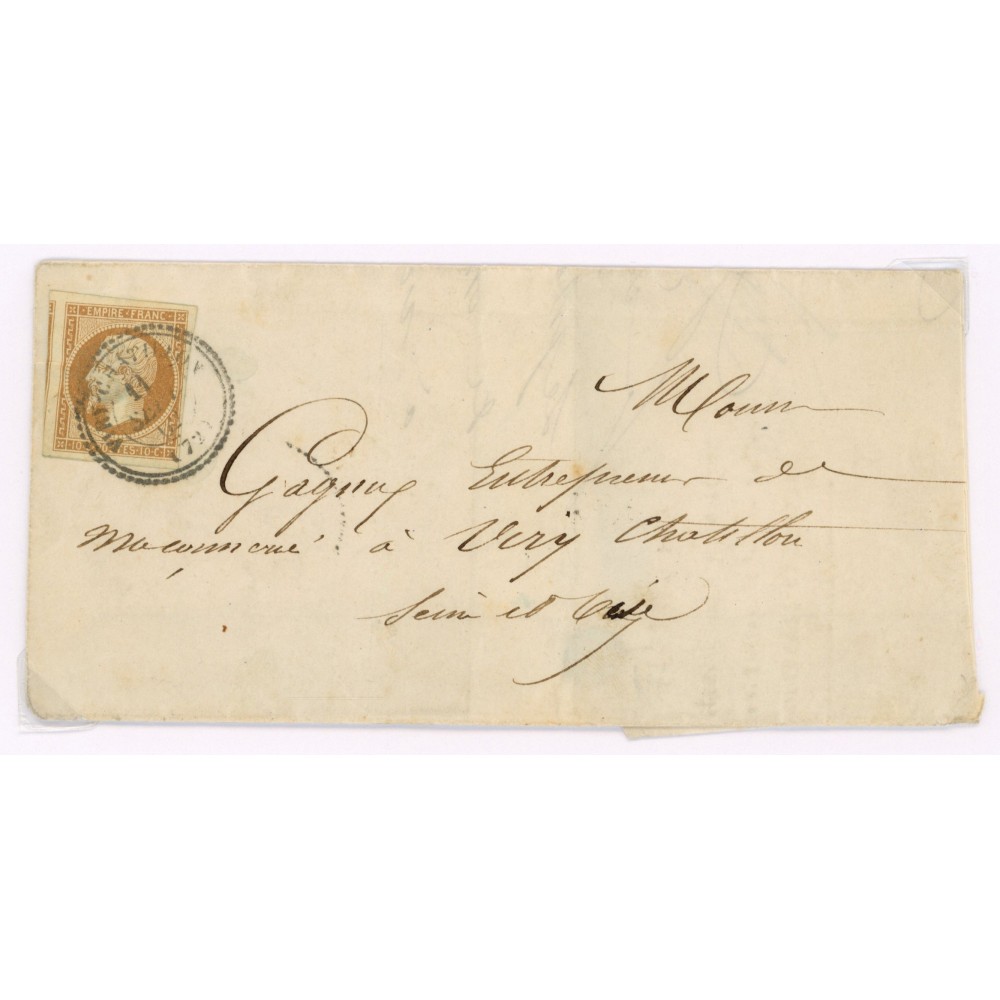 EMPIRE FRANC
10 C 10 C
(72)
Gagnny Entrepreneur de
maconnerie à Viry Chatillon
Seine et Oise